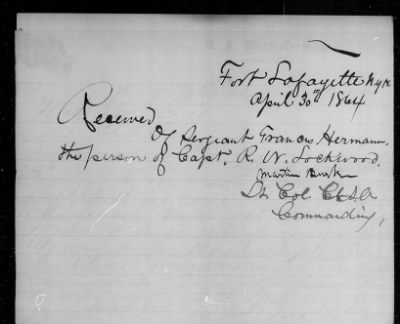 Fort Lafayette N.Y.H.
April 30th 1864
Received
Of Sergeant Francis Hermann,
the person of Capt. R. W. Lockwood.
Martin Burke
Lt Col U.S.A
Commanding,